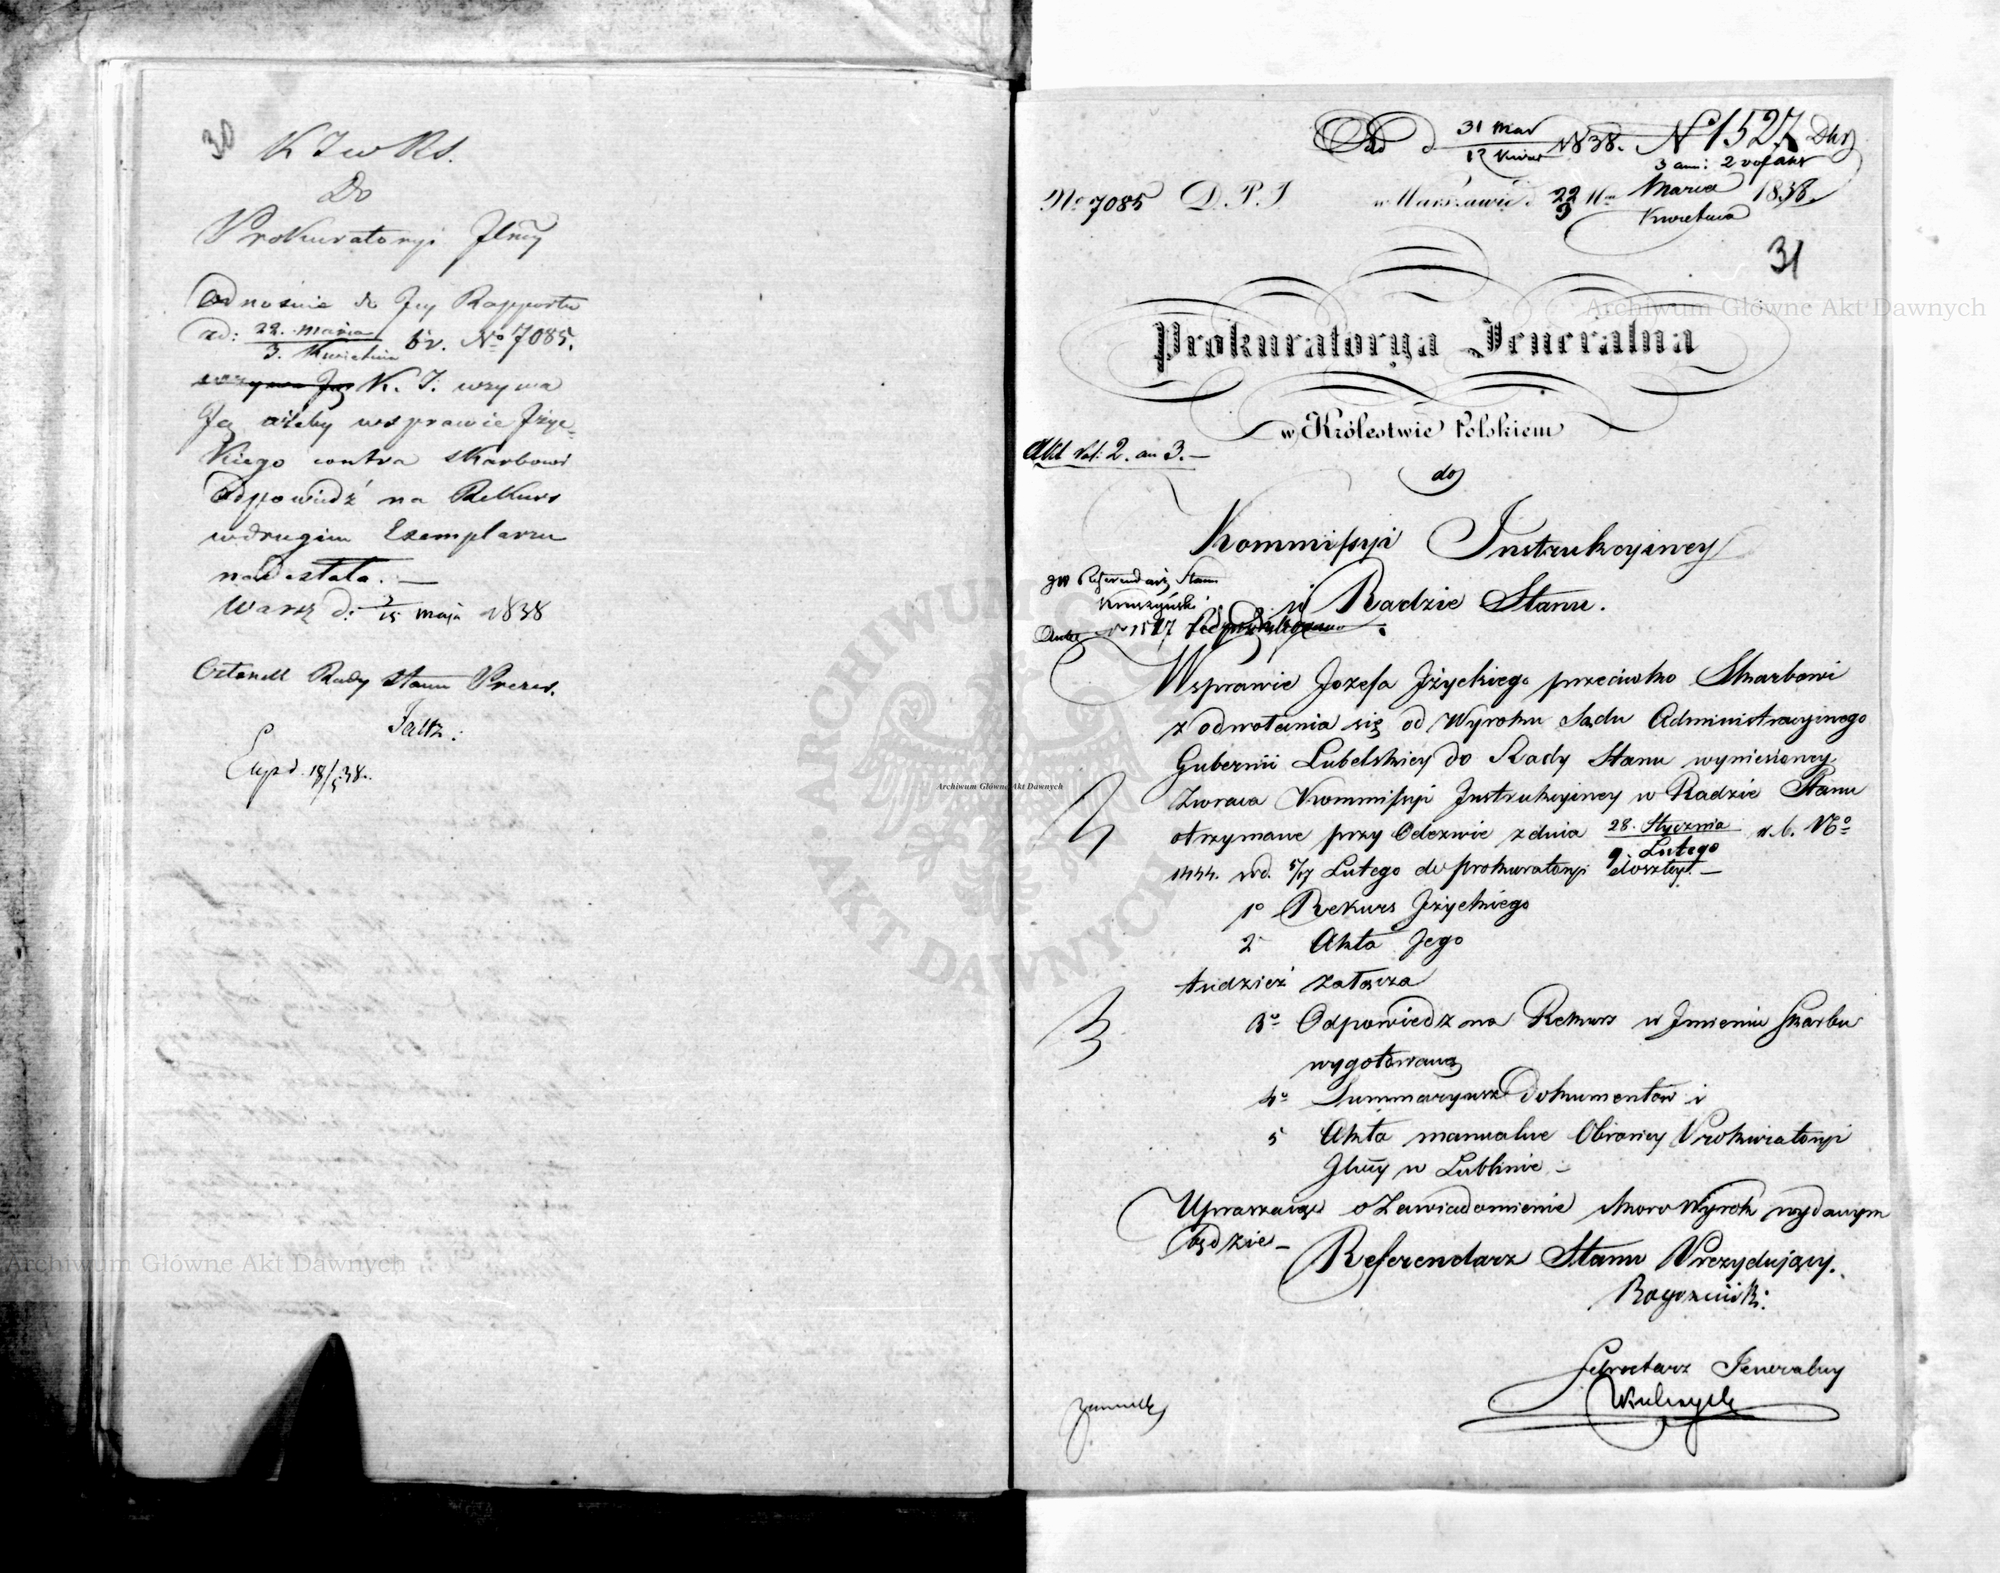 30
K J w RS.
Do
Prokuratoryi Jlney
Odnośnie do Jey Rapportu
zd: 22. Marca / 3. Kwietnia br. No 7085.
wzywa Ją K. J. wzywa
Ją ażeby w sprawie Jeżyc-
kiego contra Skarbowi
Odpowiedź na Rekurs
w drugim Exemplarzu
nadesłała. —
Warsz d: 3/15 Maja 1838
Członek Rady Stanu Prezes.
Exp d. 18/5 38.
Pd d 31 Mar / 12 Kwiet 1838. No 1527
3 ann: 2 vol akt
No 7085 D. P. J w Warszawie d. 22 Marca / 3 Kwietnia 1838.
31
Prokuratorya Jeneralna
w Królestwie Polskiem
Akt Vol: 2. an 3. —
do
Kommissyi Instrukcyiney
JW Referendarz Stanu
w Radzie Stanu.
No 1527
W sprawie Jozefa Jeżyckiego przeciwko Skarbowi
z odwołania się od Wyroku Sądu Administracyinego
Gubernii Lubelskiey do Rady Stanu wyniesioney
Zwraca Kommissyi Instrukcyiney w Radzie Stanu
otrzymane przy Odezwie z dnia 28. Stycznia / 9 Lutego r. b. No
1444. d. 5/17 Lutego do prokuratoryi doszłey. —
1o Rekurs Jeżyckiego
2 Akta Jego
tudzież załącza
3o Odpowiedz na Rekurs w Jmieniu Skarbu
wygotowaną
4o Summaryusz Dokumentów i
5 Akta manualne Obrońcy Prokuratoryi
Jlney w Lublinie —
Upraszaiąc o Zawiadomienie skoro Wyrok wydanym
będzie —
Referendarz Stanu Prezyduiący.
Sekretarz Jeneralny
Archiwum Główne Akt Dawnych
Archiwum Główne Akt Dawnych
Archiwum Główne Akt Dawnych
ARCHIWUM
AKT DAWNYCH